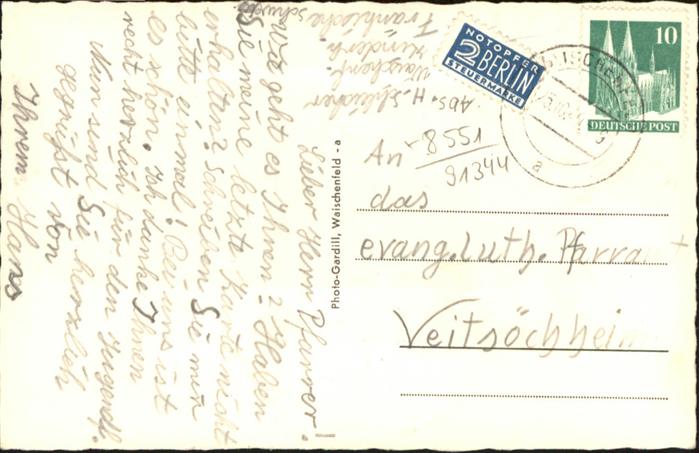 Abs. H. Schleicher
Waischenf.
Fränkische Schweiz
Lieber Herr Pfarrer.
Wie geht es Ihnen? Haben
Sie meine letzte Karte nicht
erhalten? Schreiben Sie mir
bitte einmal! Bei uns ist
es schön. Ich danke Ihnen
recht herzlich für den Jugendf.
Nun sind Sie herzlich
gegrüßt von
Ihrem Hans
Photo-Gardill, Waischenfeld - a
NOTOPFER
2 BERLIN
STEUERMARKE
10
DEUTSCHE POST
a
8551
91344
An
das
evang. Luth. Pfarramt
Veitsöchheim